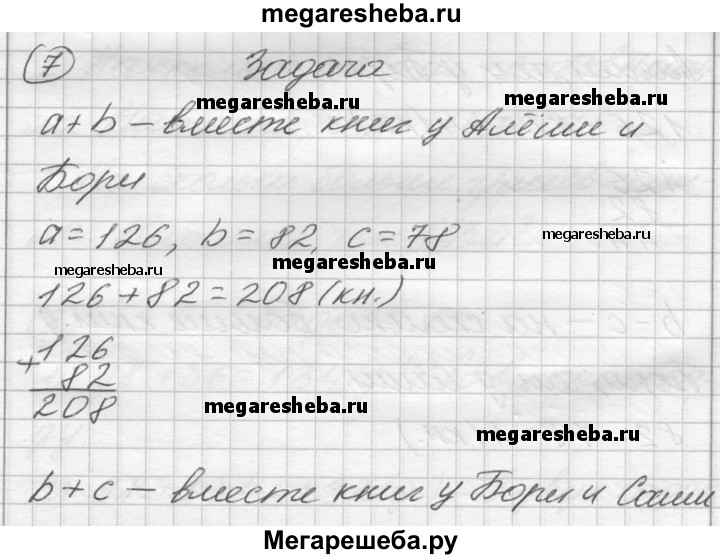 megaresheba.ru
7 Задача
megaresheba.ru megaresheba.ru
a+b – вместе книг у Алёши и
Бори
a=126, b=82, c=78 megaresheba.ru
megaresheba.ru megaresheba.ru
126+82=208(кн.)
126
+ 82
208
megaresheba.ru megaresheba.ru
b+c – вместе книг у Бори и Саши
megaresheba.ru megaresheba.ru
Мегарешеба.ру